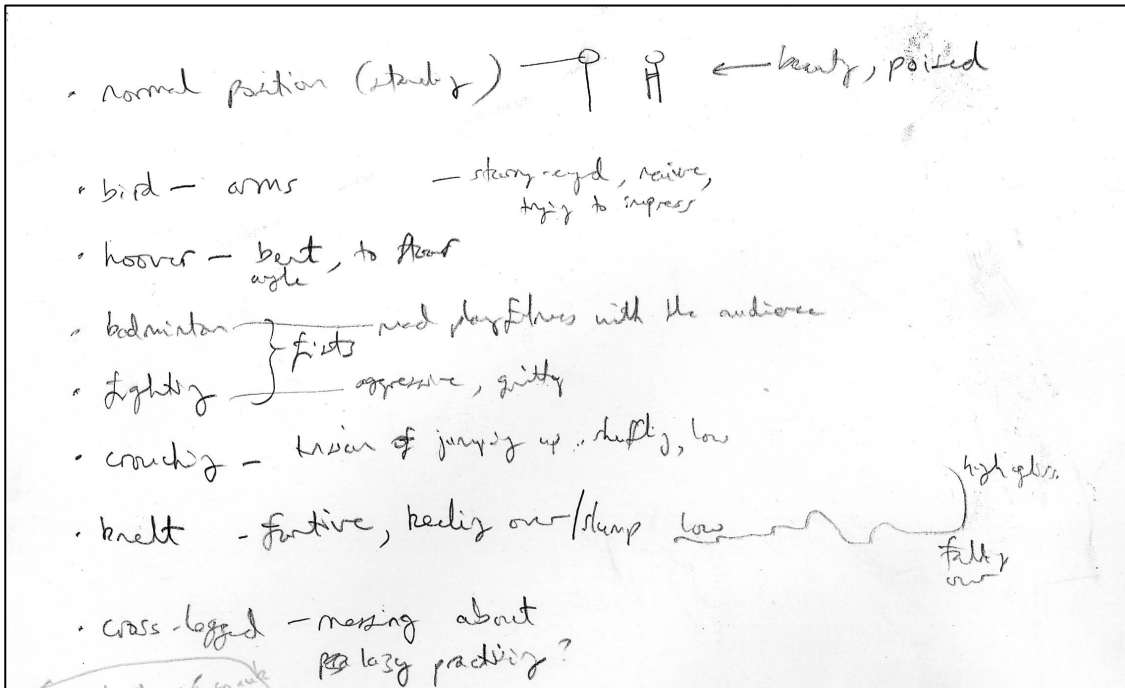 · normal position (standing) ← beauty, poised
· bird – arms – starry-eyed, naive,
trying to impress
· hoover – bent, to floor
angle
· badminton – mad playfulness with the audience
} fists
· fighting – aggressive, gritty
· crouching – tension of jumping up, shuffling, low
high gliss.
· knelt – furtive, keeling over/slump low
falling
over
· cross-legged – messing about
lazy practising?